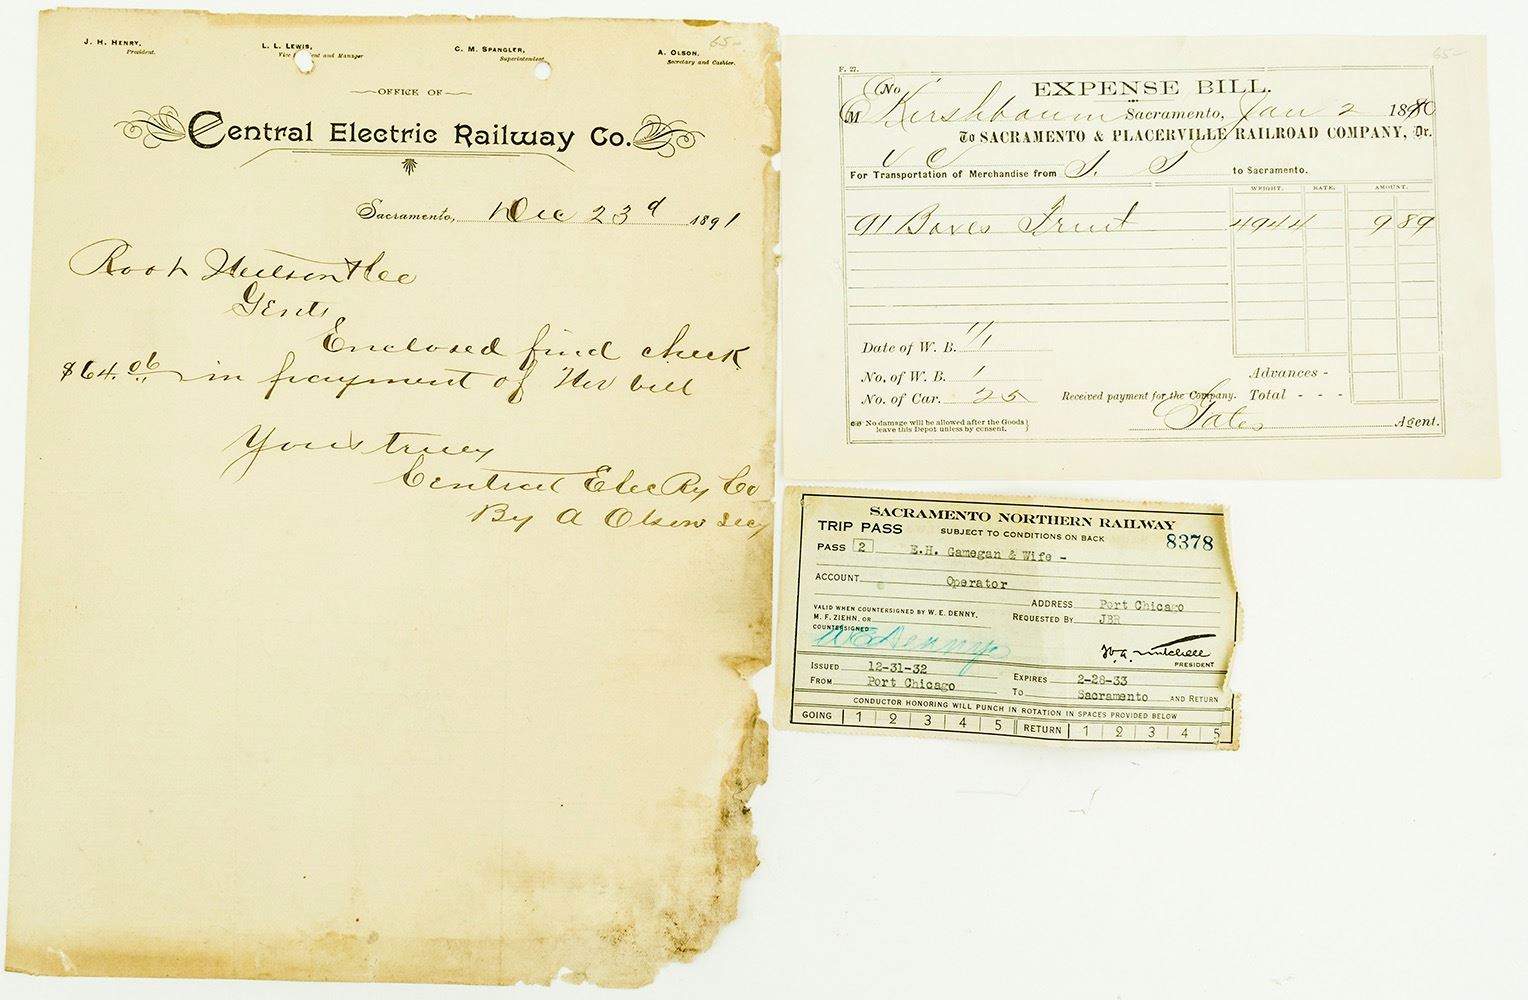 J. H. HENRY,
President.
L. L. LEWIS,
and Manager
C. M. SPANGLER,
Superintendent.
A. OLSON,
Secretary and Cashier.
65-
OFFICE OF
Central Electric Railway Co.
Sacramento, Dec 23d 1891
Root Neilson & Co
Gents
Enclosed find check
$64.06 in payment of Nov bill
Yours truly
Central Elec Ry Co
By A Olson Secy
65-
F. 27.
No
EXPENSE BILL.
M Kirshbaum Sacramento, Jan 2 1880
To SACRAMENTO & PLACERVILLE RAILROAD COMPANY, Dr.
For Transportation of Merchandise from S. S to Sacramento.
WEIGHT. RATE. AMOUNT.
91 Boxes Fruit 4944 9 89
Date of W. B. 1/1
No. of W. B. 1
Advances -
No. of Car. 25 Received payment for the Company. Total - - -
No damage will be allowed after the Goods
leave this Depot unless by consent.
Agent.
SACRAMENTO NORTHERN RAILWAY
TRIP PASS SUBJECT TO CONDITIONS ON BACK 8378
PASS 2 E.H. Gamegan & Wife -
ACCOUNT Operator
ADDRESS Port Chicago
VALID WHEN COUNTERSIGNED BY W. E. DENNY,
M. F. ZIEHN, OR
REQUESTED BY JBR
COUNTERSIGNED
W E Denny
W. A. Mitchell
PRESIDENT
ISSUED 12-31-32 EXPIRES 2-28-33
FROM Port Chicago TO Sacramento AND RETURN
CONDUCTOR HONORING WILL PUNCH IN ROTATION IN SPACES PROVIDED BELOW
GOING 1 2 3 4 5 RETURN 1 2 3 4 5